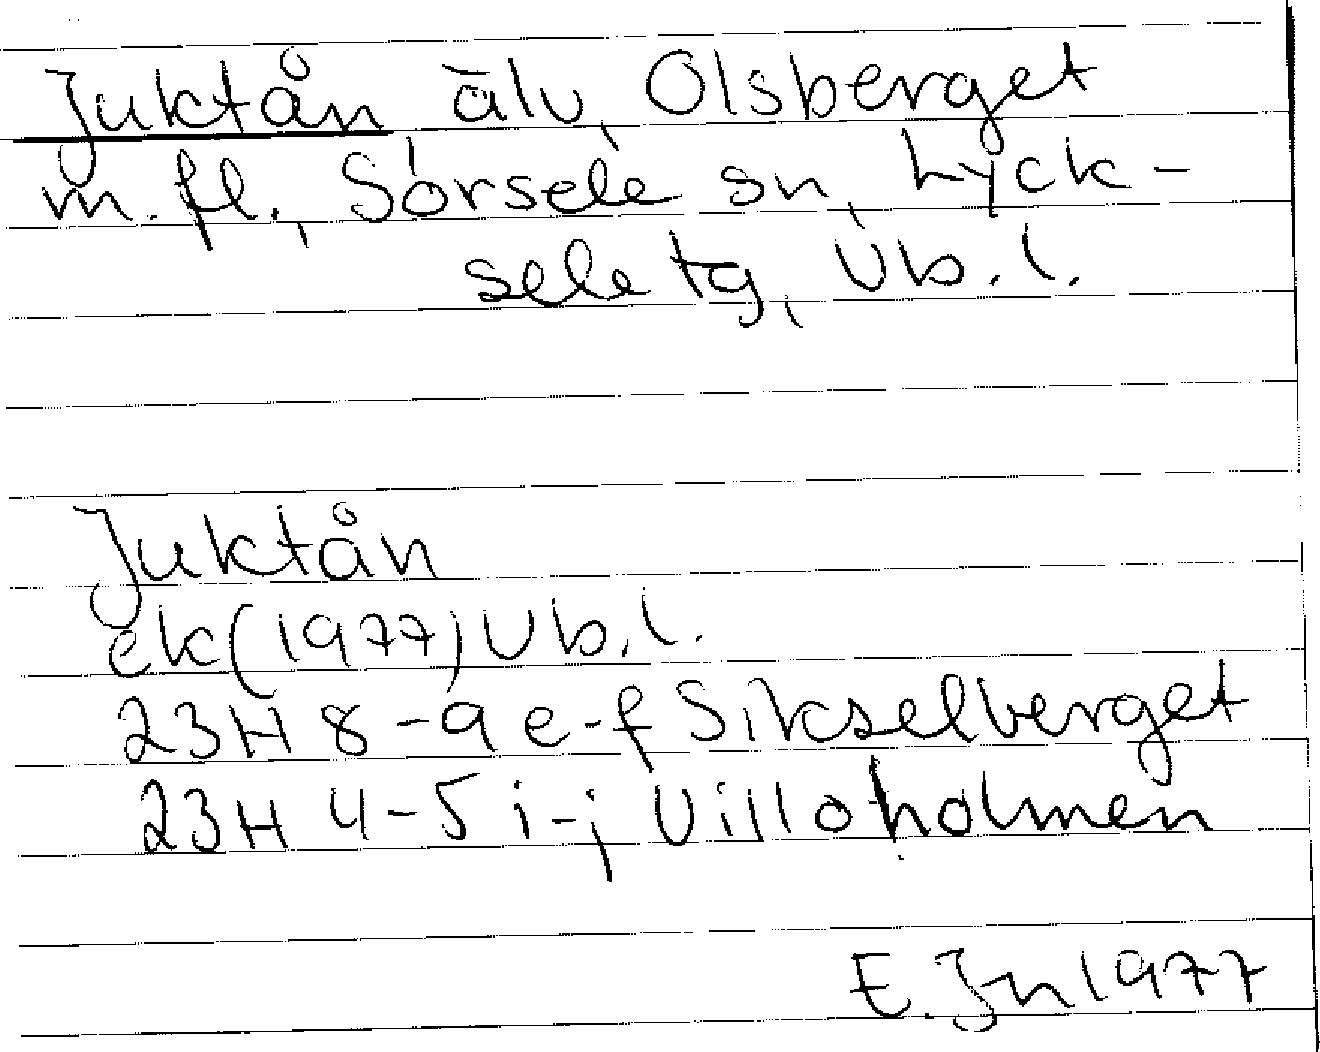 Juktån älv, Olsberget
m.fl., Sorsele sn, Lyck-
sele tg, Vb.l.
Juktån
ek(1977)Vb.l.
23H 8-9 e-f Sikselberget
23H 4-5 i-j Villoholmen
E.Jn 1977